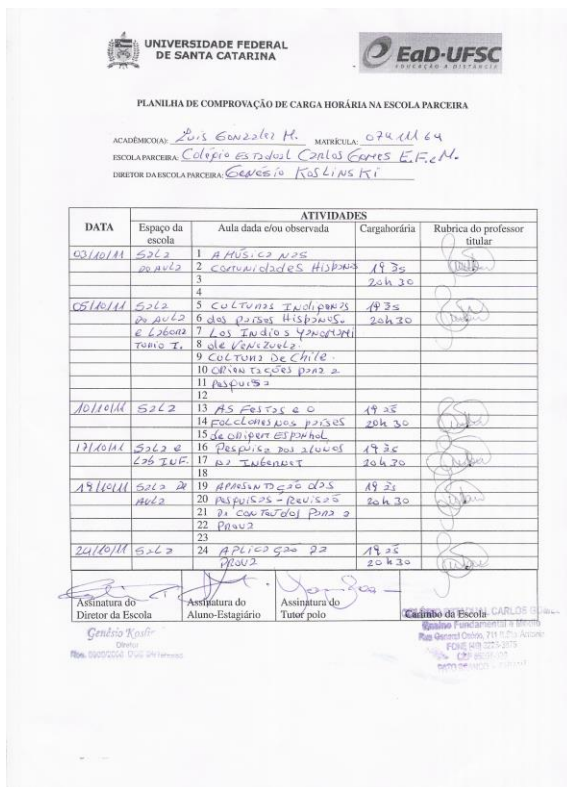 UNIVERSIDADE FEDERAL
DE SANTA CATARINA
EaD-UFSC
EDUCAÇÃO A DISTÂNCIA
PLANILHA DE COMPROVAÇÃO DE CARGA HORÁRIA NA ESCOLA PARCEIRA
ACADÊMICO(A): Luis Gonzalez M. MATRÍCULA:
ESCOLA PARCEIRA: Colégio Estadual Carlos Gomes E.F.e M.
DIRETOR DA ESCOLA PARCEIRA: Genésio Koslinski
ATIVIDADES
DATA Espaço da escola Aula dada e/ou observada Cargahorária Rubrica do professor titular
03/10/11 Sala 1 A Música nas
de Aula 2 comunidades Hispanas 19 às
3 20h30
4
05/10/11 Sala 5 Culturas Indigenas 19 às
de Aula 6 dos paises Hispanos. 20h30
e Labora 7 Los Indios Yanomami
torio I. 8 de Venezuela.
9 Cultura de Chile.
10 orientações para a
11 pesquisa
12
10/10/11 Sala 13 As Festas e o 19 às
14 Folclore nos paises 20h30
15 de origem Espanhol
17/10/11 Sala e 16 Pesquisa dos alunos 19 às
Lab INF. 17 na Internet 20h30
18
19/10/11 Sala de 19 Apresentação das 19 às
Aula 20 pesquisas - Revisão 20h30
21 de conteudos para a
22 Prova
23
24/10/11 Sala 24 Aplicação da 19 às
Prova 20h30
Assinatura do Diretor da Escola
Assinatura do Aluno-Estagiário
Assinatura do Tutor polo
Carimbo da Escola
CARLOS
Ensino Fundamental e
Rua General Osório,
Diretor
FONE
CEP